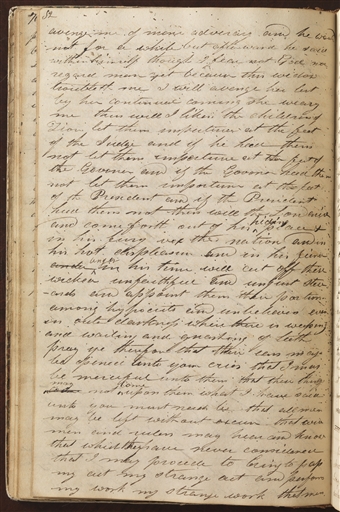 52
avenge me of mine adversary and he wou
not for a while but afterward he said
within himself though I fear not God nor
regard man yet because this widdow
troubleth me I will avenge her lest
by her continual coming she weary
me thus will I liken the children of
Zion let them importune at the feet
of the Judge and if he heed them
not let them importune at the feet of
the Govener and if the Govener heed them
not let them importune at the feet
of the President and if the President
heed them not then will the Lord arise
and come forth out of his hiding place
in his fury vex the nation and in
his hot displeasure and in his fierce
anger in his time will cut off these
wicked unfaithful and unjust stew
ards and appoint them their portion
among hypocrits and unbelievers even
in outer darkness where there is weeping
and wailing and gnashing of teeth
pray ye therefore that their ears may
be opened unto your cries that I may
be merciful unto them that these things
may not come upon them what I have said
unto you must needs be that all men
may be left without excuse that wise
men and rulers may hear and know
that which they have never considered
that I may proceede to bring to pass
my act my strange act and perform
my work my strange work that men